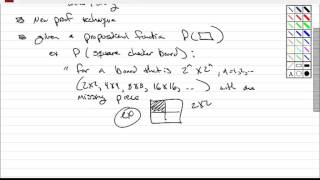 New proof technique
given a propositional function P(□)
ex P(square checker board):
"for a board that is 2^n x 2^n, n=1,2,...
(2x2, 4x4, 8x8, 16x16, ...) with one
missing piece
2x2